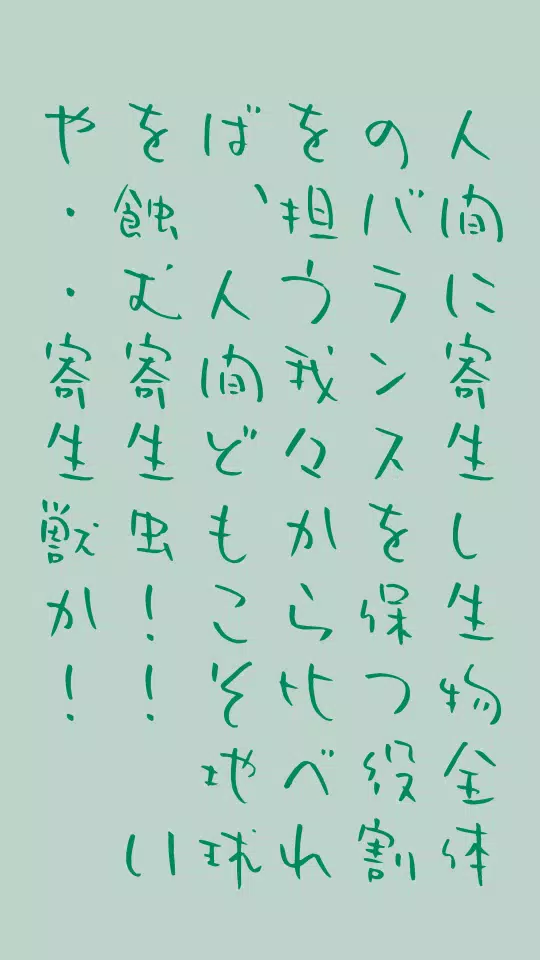 人間に寄生し生物全体
のバランスを保つ役割
を担う我々から比べれ
ば、人間どもこそ地球
を蝕む寄生虫!!い
や・・寄生獣か!